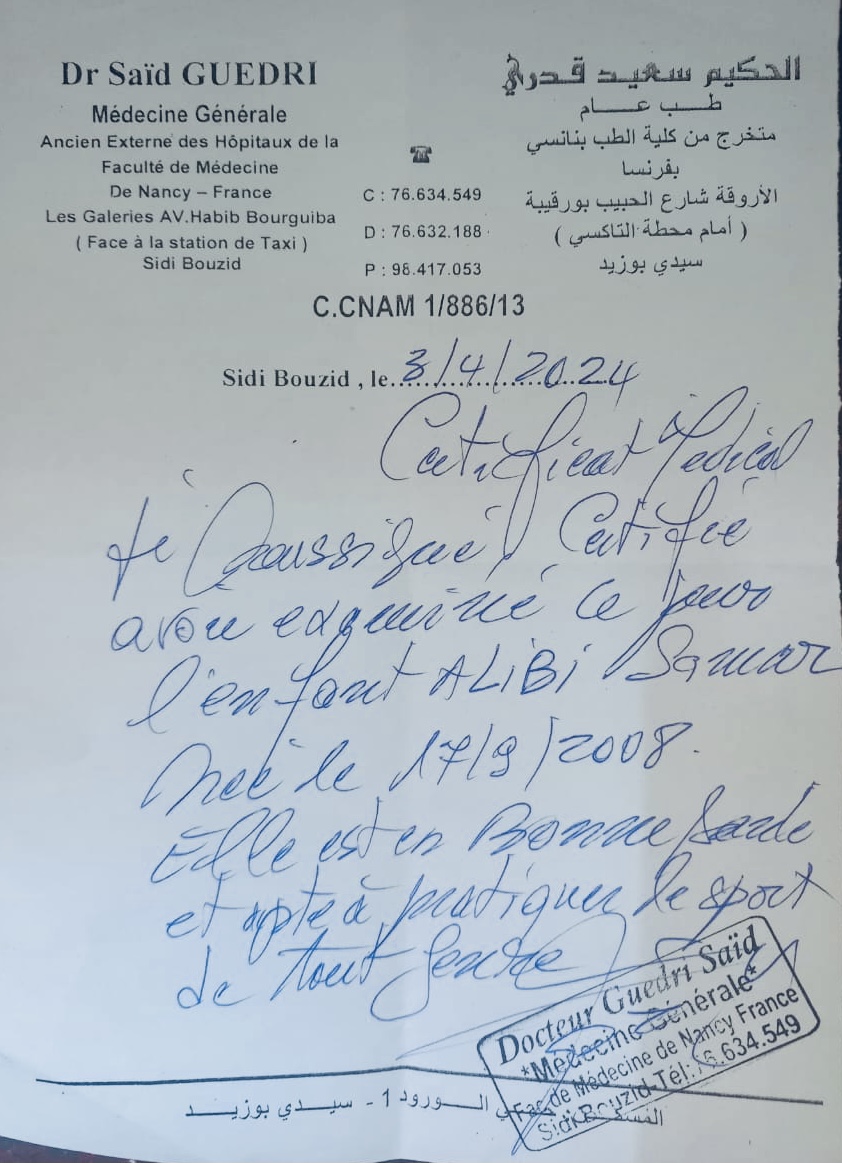 Dr Saïd GUEDRI
Médecine Générale
Ancien Externe des Hôpitaux de la
Faculté de Médecine
De Nancy – France
Les Galeries AV.Habib Bourguiba
( Face à la station de Taxi )
Sidi Bouzid
☎
C : 76.634.549
D : 76.632.188
P : 98.417.053
الحكيم سعيد قدري
طب عام
متخرج من كلية الطب بنانسي
بفرنسا
الأروقة شارع الحبيب بورقيبة
( أمام محطة التاكسي )
سيدي بوزيد
C.CNAM 1/886/13
Sidi Bouzid , le 3/4/2024
Certificat Médical
Je Soussigné, Certifié
avoir examiné ce jour
l'enfant ALiBi Samar
Née le 17/9/2008.
Elle est en Bonne Santé
et apte à pratiquer le sport
de tout genre
Docteur Guedri Saïd
*Médecine Générale*
Fac de Médecine de Nancy France
Sidi Bouzid-Tél:76.634.549
الورود 1 - سيدي بوزيد